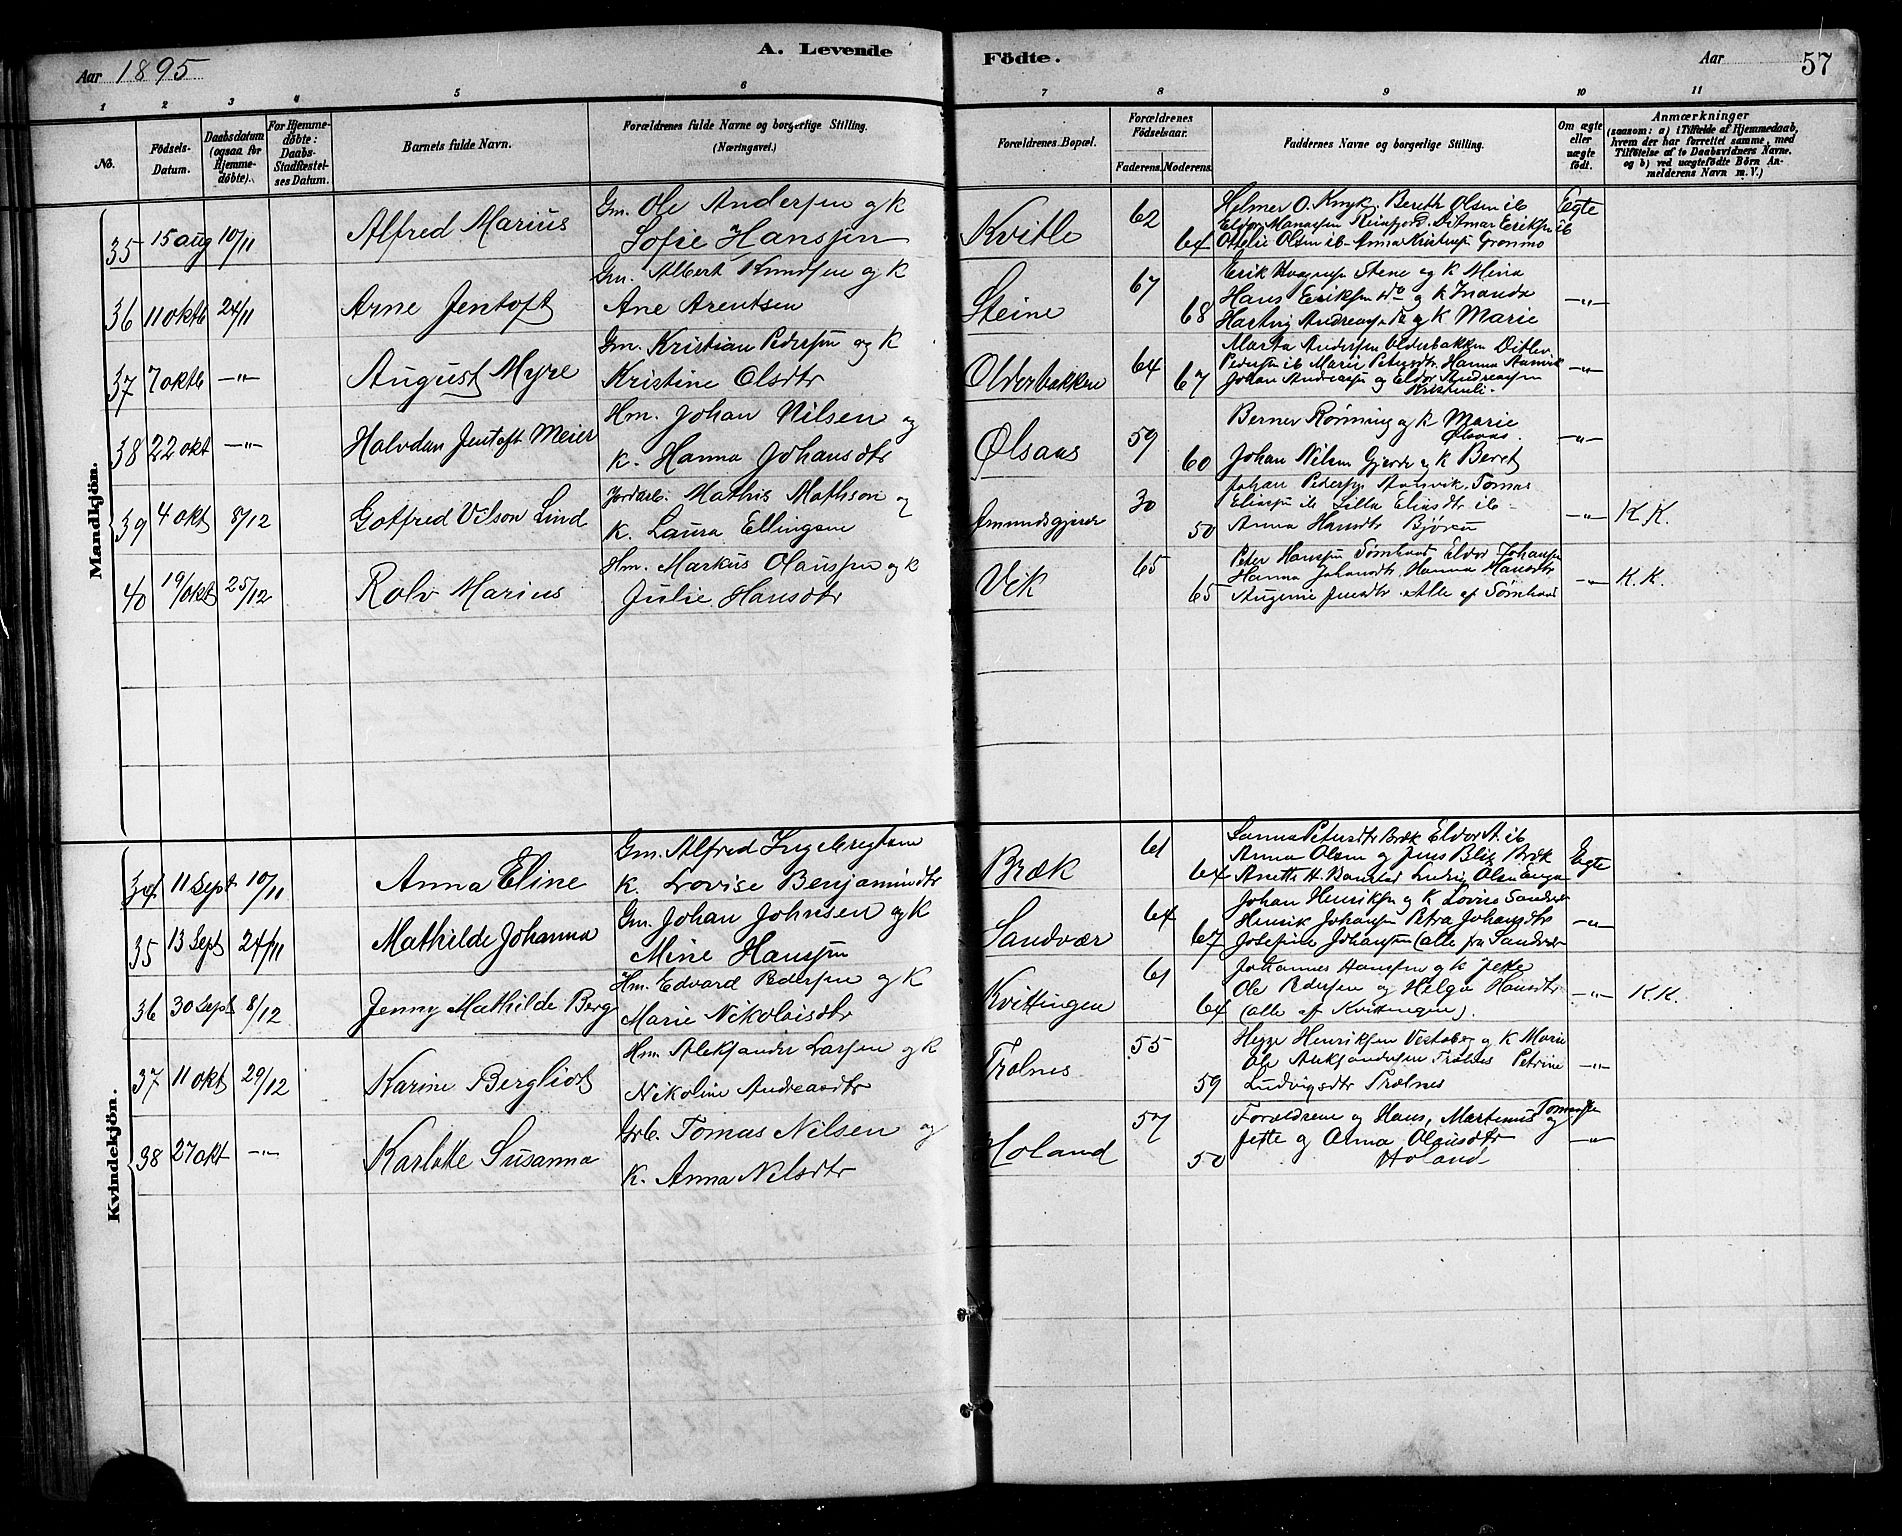 Aar 1895
A. Levende
Födte.
Aar
57
1 2 3 4 5 6 7 8 9 10 11
No.
Födsels-
Datum.
Daabsdatum
(ogsaa for
Hjemme-
døbte).
For Hjemme-
døbte:
Daabs-
Stadfæstel-
ses Datum.
Barnets fulde Navn.
Forældrenes fulde Navne og borgerlige Stilling.
(Næringsvei.)
Forældrenes Bopæl.
Forældrenes
Fødselsaar.
Faderens. Moderens.
Faddernes Navne og borgerlige Stilling.
Om ægte
eller
uægte
født.
Anmærkninger
(saasom: a) i Tilfælde af Hjemmedaab,
hvem der har forrettet samme, med
Tilføielse af to Daabsvidners Navne.
og b) ved uægtefødte Börn An-
melderens Navn m. V.)
Mandkjön.
35 15 aug 10/11 Alfred Marius
Gm. Ole Andersen og k
Sofie Hanssen
Kvitle 62 64
Helmer O. Knyk. Bereth Olsen ib
Eldor Manassen Reinfjord. Ditmar Eriksen ib
Ottelie Olsen ib - Anna Kristensen Grønmo
Egte
36 11 oktb 24/11 Arne Jentoft
Gm. Albert Knudsen og k
Ane Arentsen
Steine 67 68
Erik Stene og k Mina
Hans Eriksen do og k Inanda
Hartvig Andreass. do og k Marie
-"-
37 7 oktb -"- August Myre
Gm. Kristian Pedersen og k
Kristine Olsdtr
Olderbakken 64 67
Marta Andersen Olderbakken Ditlev
Pedersen ib Marie Petersdtr. Hanna
Johan Andreassen og Eldor Andreassen
Kristenli.
-"-
38 22 okt -"- Halvdan Jentoft Meier
Hm. Johan Nilsen og
k. Hanna Johansdtr
Ølsaas 59 60
Berner Rønning og k Marie
Ølsaas.
Johan Nilsen Gjerde og k Beret
-"-
39 4 okt 8/12 Gotfred Vilson Lind
Jordarb. Mathis Mathson og
k. Laura Ellingsen
Amundsgjerde 30 50
Johan Peders. Aanvik. Tomas
Eliassen ib Lilla Eliasdtr ib -
Anna Hansdtr
-"- K.K.
40 19/okt 25/12 Rolv Marius
Hm. Markus Olaussen og k
Julie Hansdtr
Vik 65 65
Peter Hanssen Sømhovd Eldor Johansen
Hanna Johansdtr. Hanna Hansdtr
Augenie Jensdtr. Alle af Sømhovd
-"- K.K.
Kvindekjön.
34 11 Sept 10/11 Anna Eline
Gm. Alfred Ingebregtsen
k. Lovise Benjamindtr
Bræk 61 64
Sanna Petersdtr Bræk Eldor A ib
Anna Olsen og Jens Blix Bræk
Anette H. Ludvig Olsen Enga
Egte
35 13 Sept 24/11 Mathilde Johanna
Gm. Johan Johnsen og k
Mine Hanssen
Sandvær 64 67
Johan Henriksen og k Lovise Sandvær
Henrik Johansen Petra Johansdtr
Josefine Johansen (alle fra Sandvær
-"-
36 30 Sept 8/12 Jenny Mathilde Berg
Hm. Edvard Pedersen og k
Marie Nikolaisdtr
Kvittingen 61 64
Johannes Hansen og k Jette
Ole Pedersen og Helga Hansdtr
(alle af Kvittingen).
-"- K.K.
37 11 okt 29/12 Karine Bergliot
Hm. Aleksander Larsen og k
Nikoline Andreasdtr
Trælnes 55 59
Henriksen og k Marie
Ole Aleksandersen Trælnes Petrine
Ludvigsdtr Trælnes
-"-
38 27 okt -"- Karlotte Susanna
Grb. Tomas Nilsen og
k. Anna Nilsdtr
Holand 57 50
Forældrene og Hans, Martinus Tomassen og
Jette og Anna Olausdtr
Holand
-"-